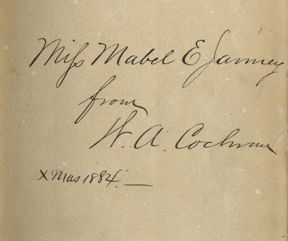 Miss Mabel E Janney
from
W. A. Cochran
X Mas 1884. —